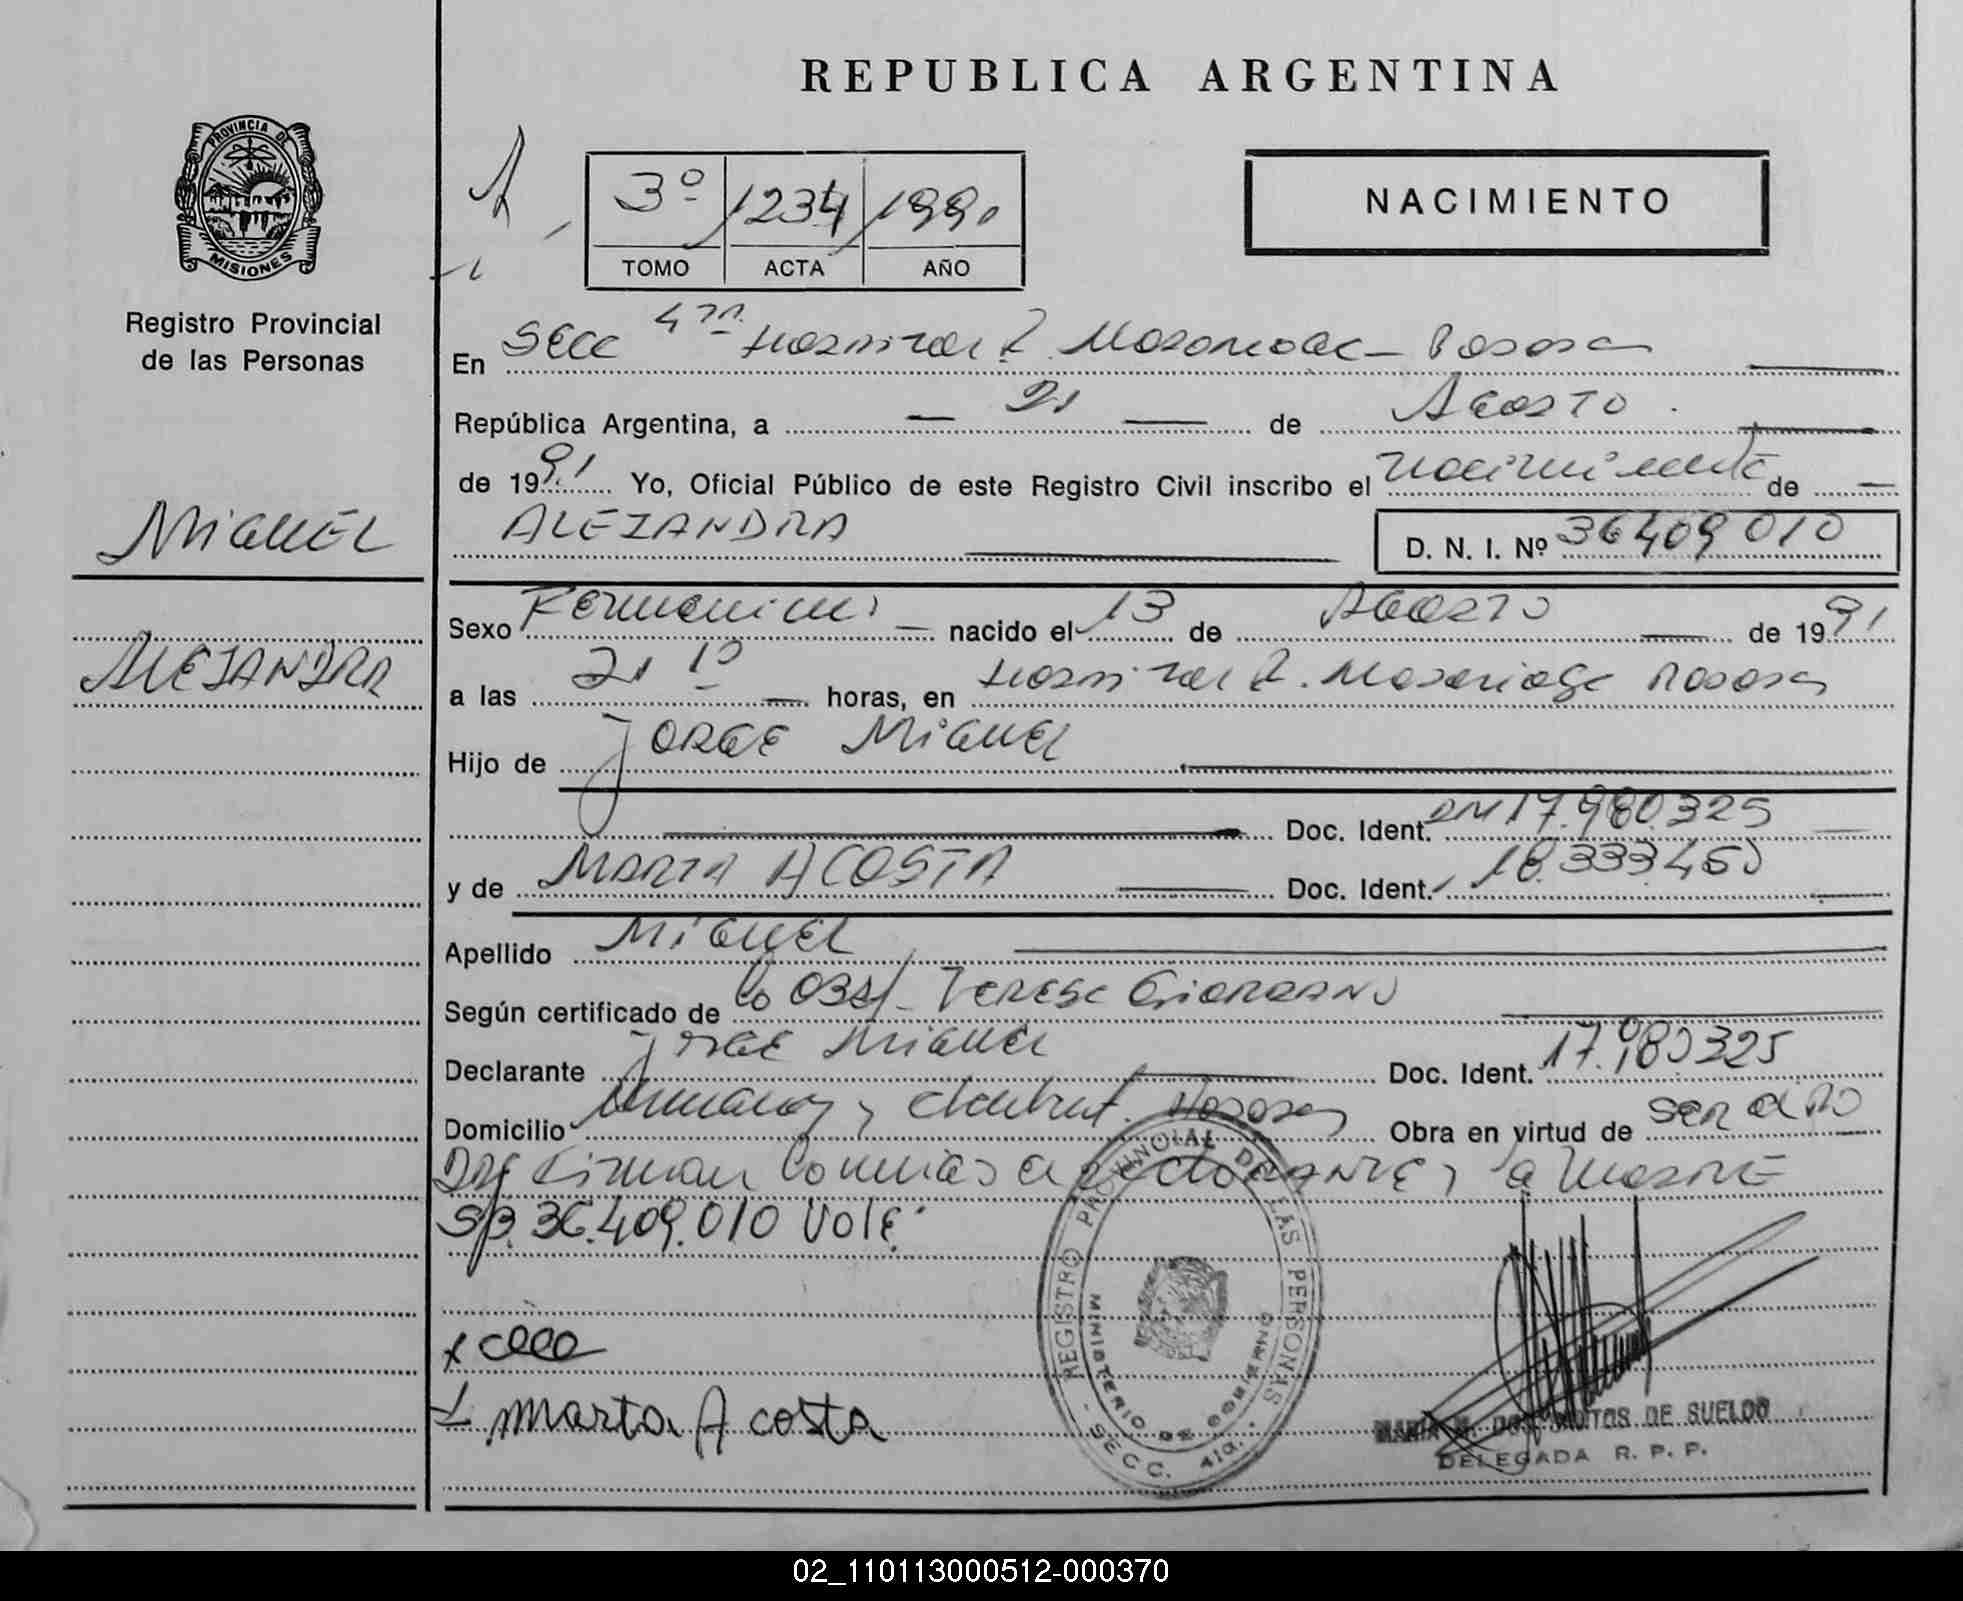 REPUBLICA ARGENTINA
PROVINCIA DE
MISIONES
Registro Provincial
de las Personas
3º 1234 1991
TOMO ACTA AÑO
NACIMIENTO
En Secc 4ta Hospital R. Madariaga - Posadas
República Argentina, a 21 de Agosto
de 1991 Yo, Oficial Público de este Registro Civil inscribo el nacimiento de
ALEJANDRA
D. N. I. Nº 36409010
MIGUEL
ALEJANDRA
Sexo Femenino nacido el 13 de Agosto de 1991
a las 21 10 horas, en Hospital R. Madariaga Posadas
Hijo de JORGE MIGUEL
Doc. Ident. DNI 17.980.325
y de MARTA ACOSTA Doc. Ident. 18.333.450
Apellido MIGUEL
Según certificado de la Obst. Teresa Giordano
Declarante Jorge Miguel Doc. Ident. 17.980325
Domicilio y Posadas Obra en virtud de ser el
Firman Conmigo el declarante y la madre
36.409.010 Vale
Marta Acosta
REGISTRO PROVINCIAL DE LAS PERSONAS
MINISTERIO DE GOBIERNO
SECC. 4ta.
MARIA M. DOS SANTOS DE SUELDO
DELEGADA R. P. P.
02_110113000512-000370